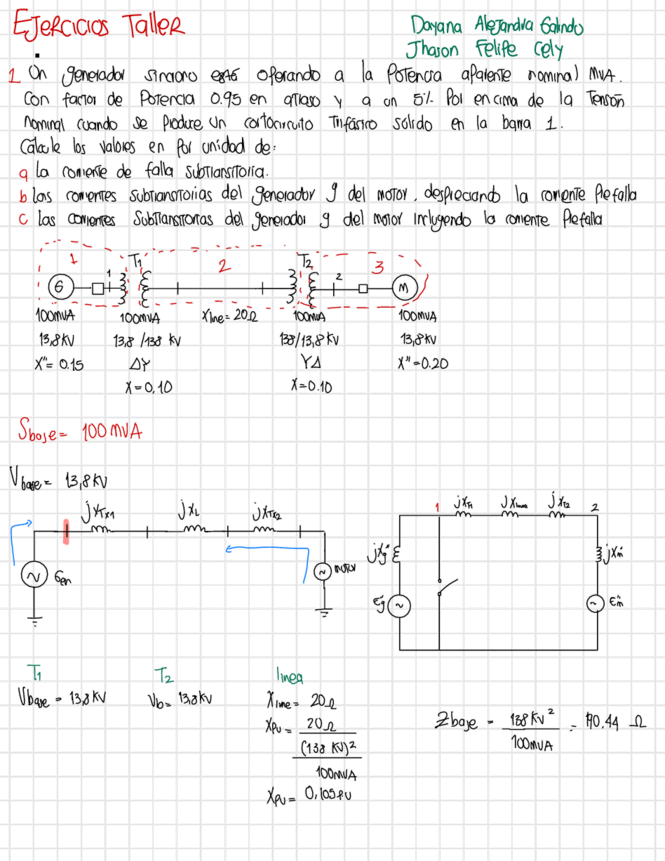 Ejercicios Taller
Dayana Alejandra Galindo
Jhason Felipe Cely
1 Un generador sincrono operando a la Potencia aparente nominal MVA.
Con factor de Potencia 0.95 en atraso y a un 5% Por encima de la Tensión
nominal cuando se Produce un cortocircuito Trifásico solido en la barra 1.
Calcule los valores en Por unidad de:
a La corriente de falla subtransitoria.
b Las corrientes subtransitorias del generador y del motor, despreciando la corriente Prefalla
c Las corrientes subtransitorias del generador y del motor incluyendo la corriente Prefalla
1 T1 2 T2 3
G 1 2 M
100MVA 100MVA Xline = 20Ω 100MVA 100MVA
13,8kV 13,8/138 kV 138/13,8 kV 13,8kV
X'' = 0.15 ΔY YΔ X'' = 0.20
X = 0,10 X = 0.10
Sbase = 100 MVA
Vbase = 13,8 kV
jXTx1 jXL jXTx2
Gen motor
1 jXT1 jXLinea jXT2 2
jXg'' jXm''
Eg'' Em''
T1 T2 linea
Vbase = 13,8 kV Vb = 13,8 kV Xline = 20Ω
Xpu = 20Ω
(138 kV)²
100MVA
Xpu = 0,105 PU
Zbase = 138 kV² = 190.44 Ω
100MVA